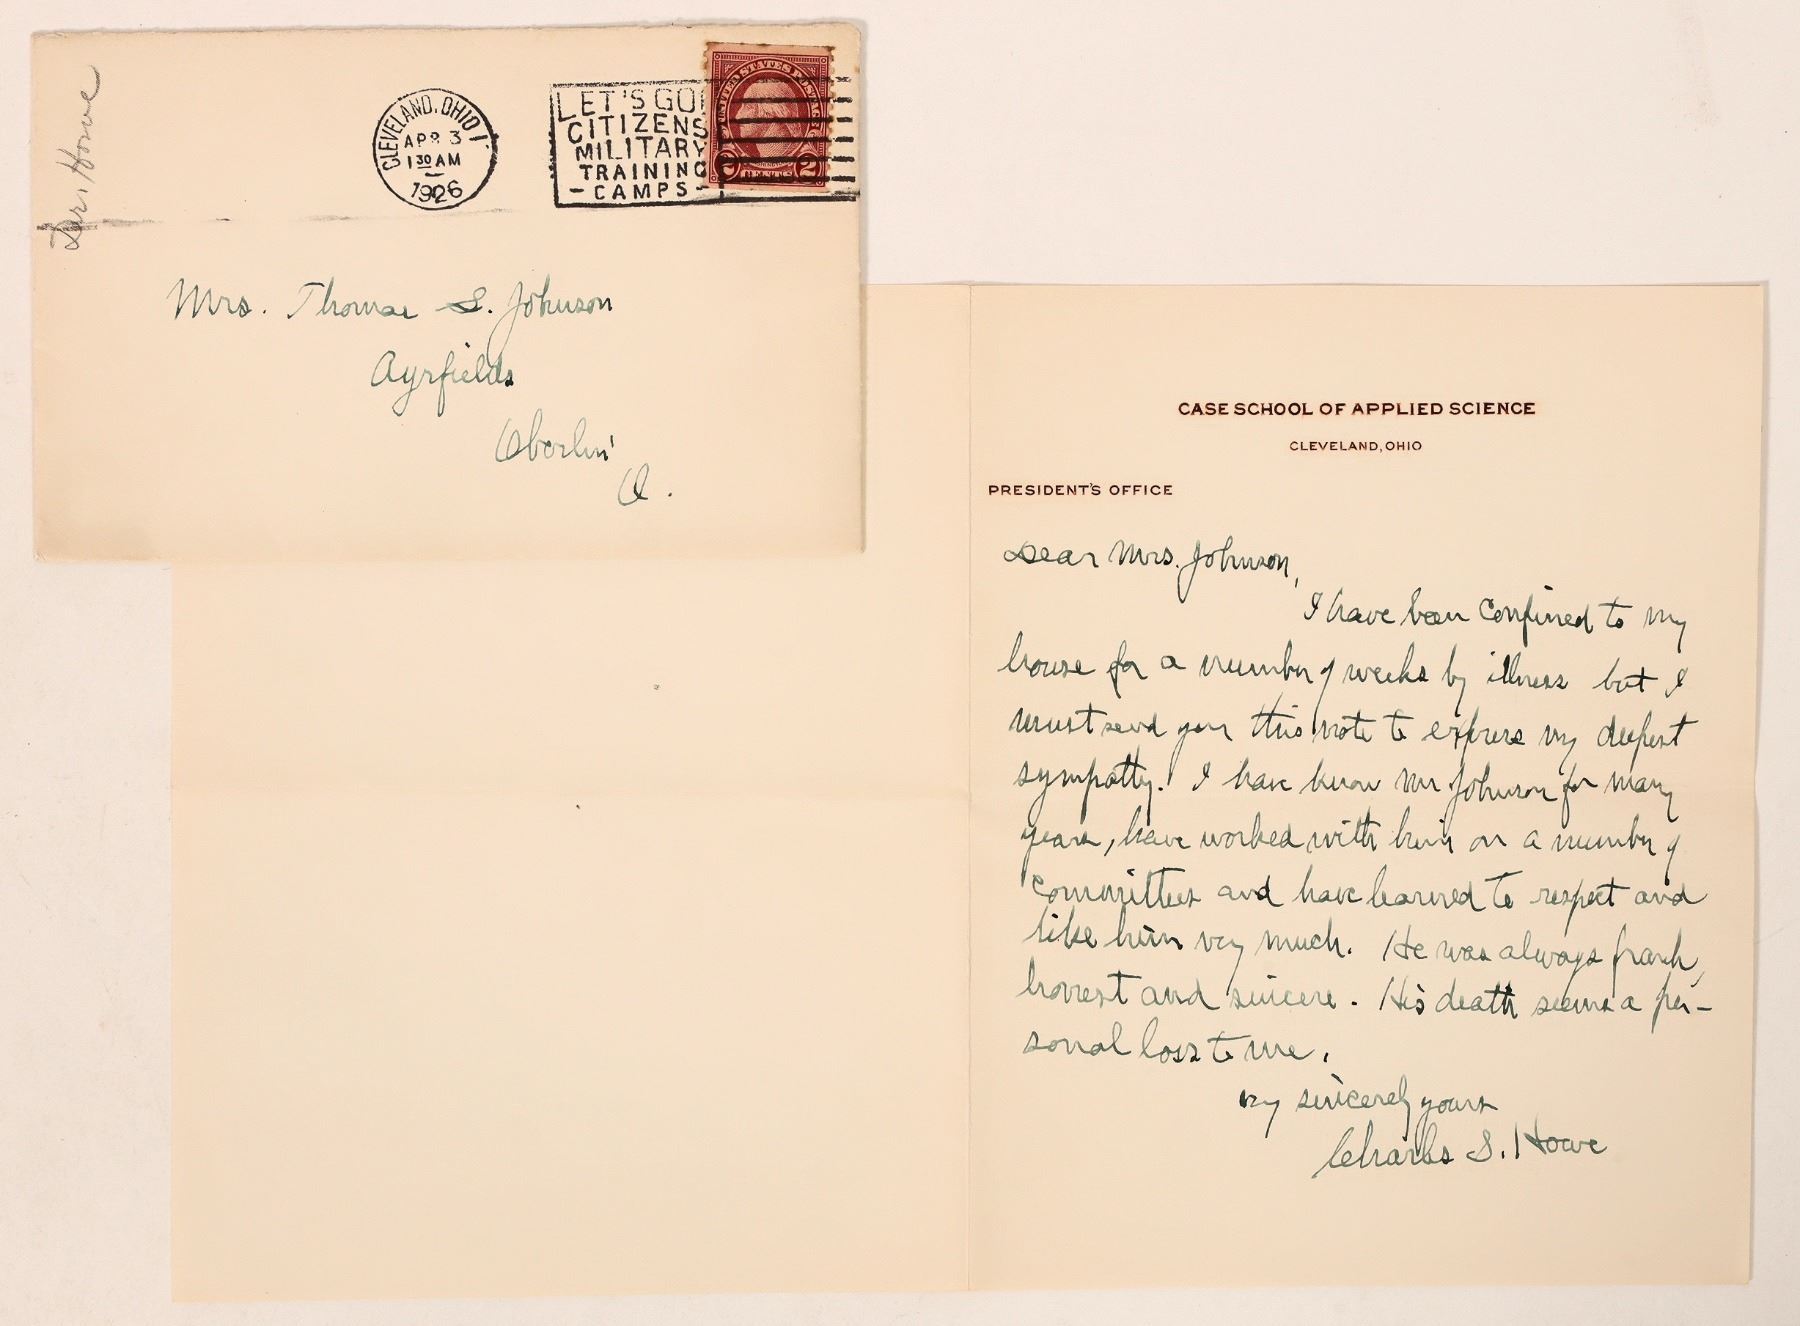 Howe
CLEVELAND, OHIO 1
APR 3
1 30 AM
1926
LET'S GO!
CITIZENS
MILITARY
TRAINING
- CAMPS -
UNITED STATES POSTAGE
2 2
Mrs. Thomas S. Johnson
Ayrfields
Oberlin
O.
CASE SCHOOL OF APPLIED SCIENCE
CLEVELAND, OHIO
PRESIDENT'S OFFICE
Dear Mrs. Johnson,
I have been confined to my
house for a number of weeks by illness but I
must send you this note to express my deepest
sympathy. I have know Mr Johnson for many
years, have worked with him on a number of
committees and have learned to respect and
like him very much. He was always frank,
honest and sincere. His death seems a per-
sonal loss to me.
Very sincerely yours
Charles S. Howe